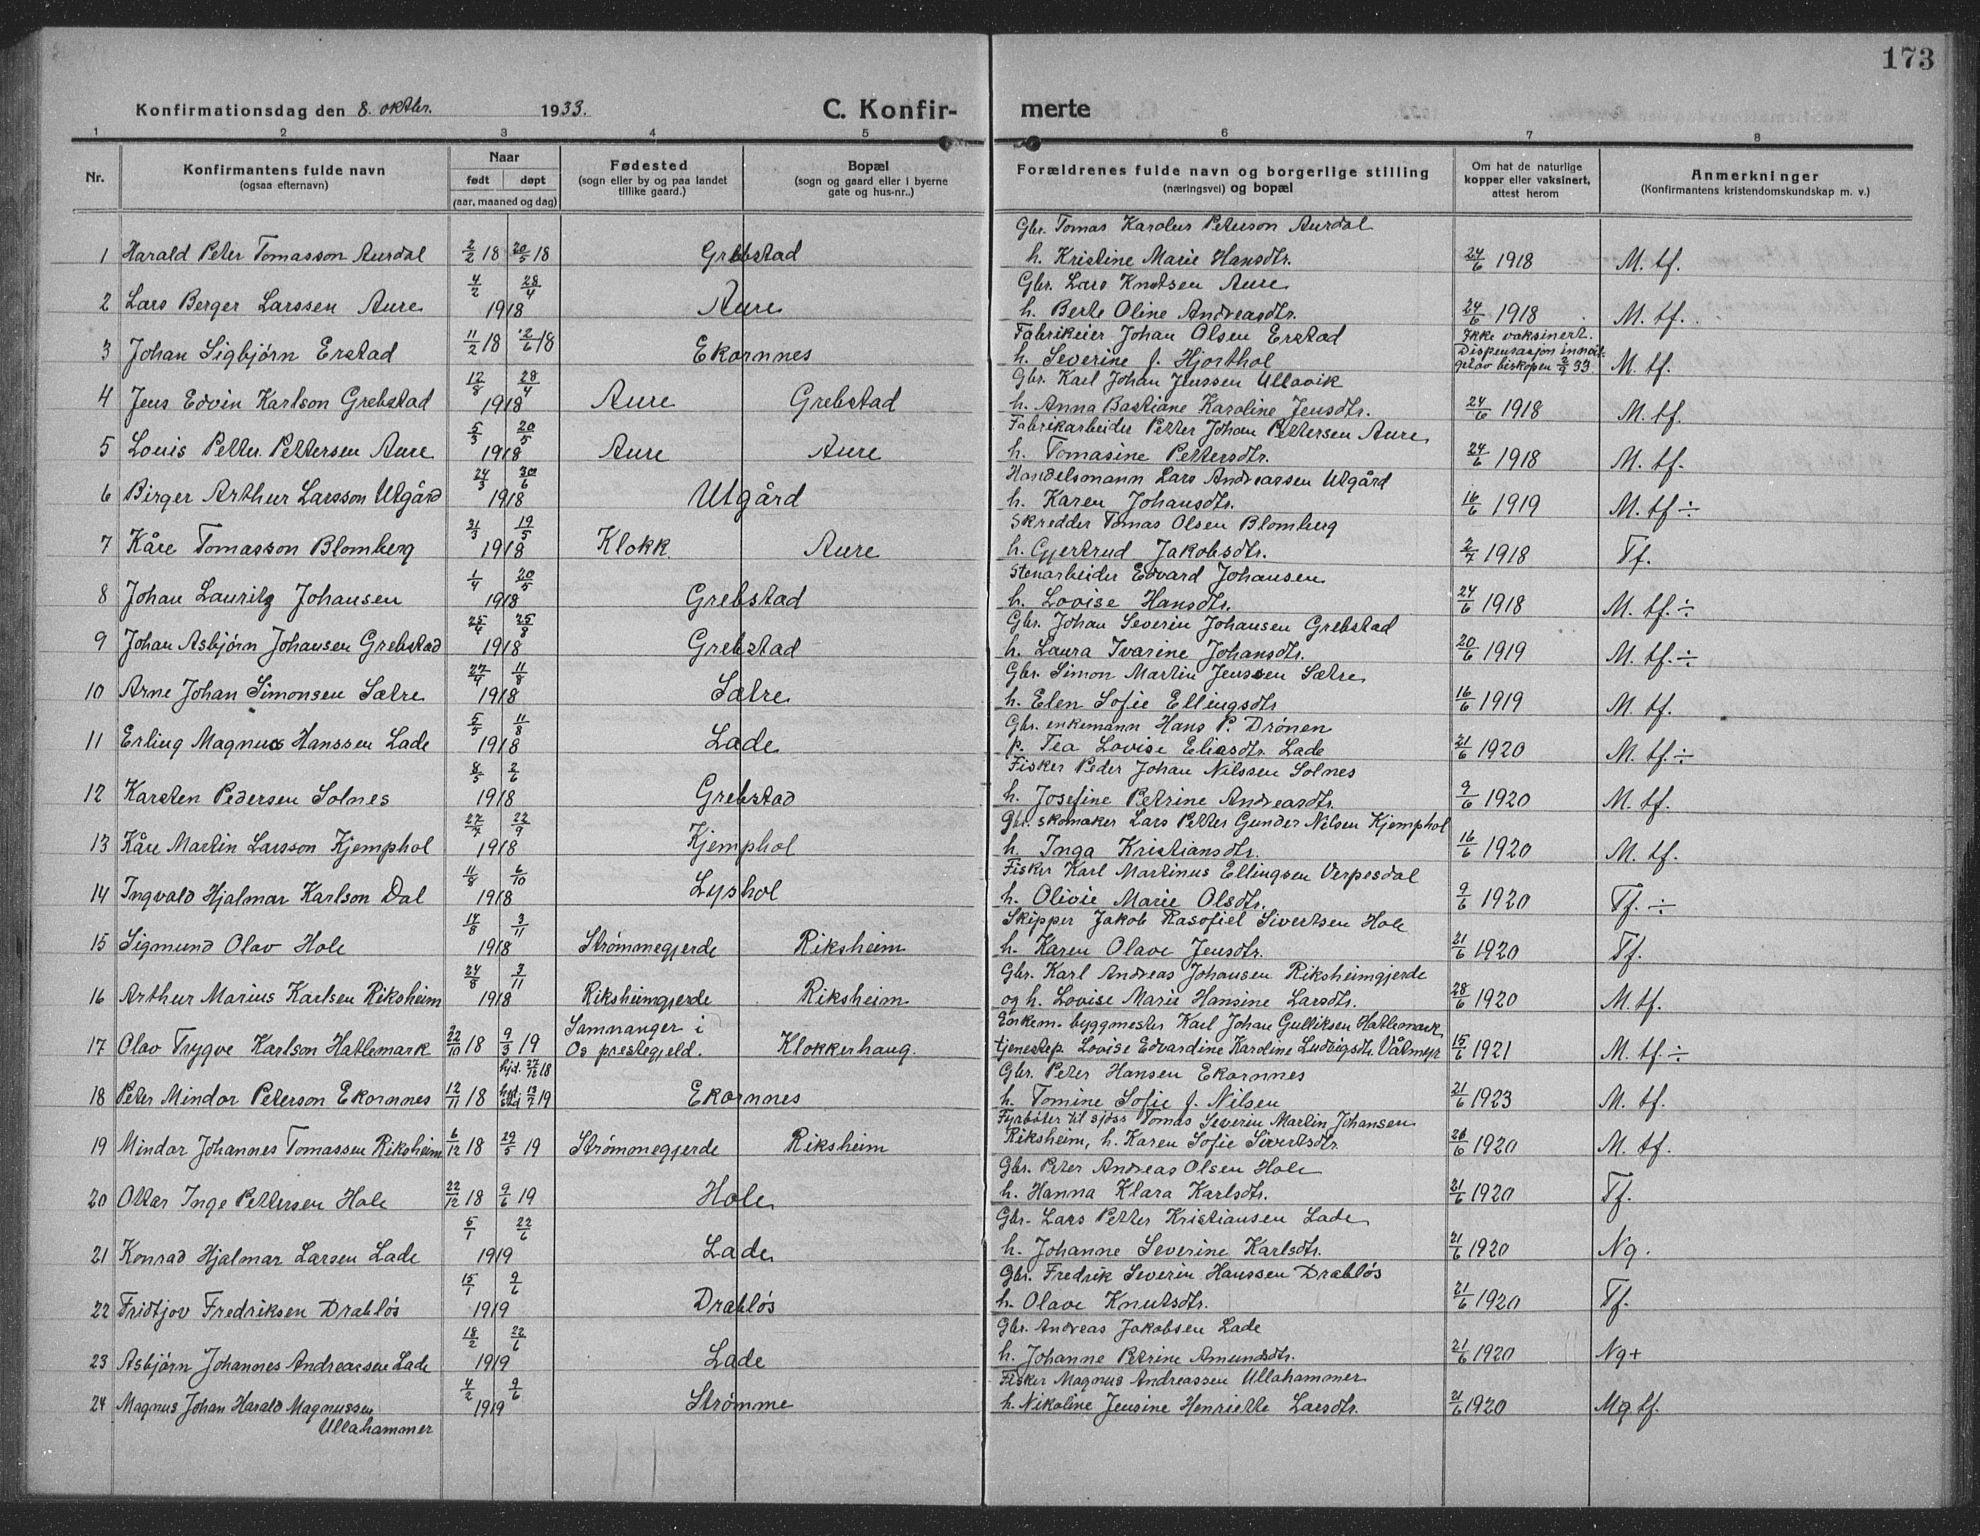 173
Konfirmationsdag den 8. oktbr. 1933. C. Konfir- merte
1 2 3 4 5 6 7 8
Nr. Konfirmantens fulde navn (ogsaa efternavn) Naar født døpt (aar, maaned og dag) Fødested (sogn eller by og paa landet tillike gaard.) Bopæl (sogn og gaard eller i byerne gate og hus-nr..) Forældrenes fulde navn og borgerlige stilling (næringsvei) og bopæl Om hat de naturlige kopper eller vaksinert, attest herom Anmerkninger (Konfirmantens kristendomskundskap m. v.)
Gbr. Tomas Karolus Peterson Aurdal
1 Harald Peter Tomasson Aurdal 2/2 18 20/5 18 Grebstad h. Kristine Marie Hansdtr. 24/6 1918 M. tf.
4/2 28/4 Gbr. Lars Knutsen Aure
2 Lars Berger Larssen Aure 1918 Aure h. Berte Oline Andreasdtr. 24/6 1918 M. tf.
Fabrikeier Johan Olsen Erstad Ikke vaksinert.
3 Johan Sigbjørn Erstad 11/2 18 2/6 18 Ekornnes h. Severine f. Hjorthol Dispensasjon innvil- get av biskopen 2/9 33. M. tf.
12/8 28/4 Gbr. Karl Johan Jenssen Ullavik
4 Jens Edvin Karlson Grebstad 1918 Aure Grebstad h. Anna Bastiane Karoline Jensdtr. 24/6 1918 M. tf.
5/3 20/5 Fabrikarbeider Petter Johan Pettersen Aure
5 Louis Petter Pettersen Aure 1918 Aure Aure h. Tomasine Pettersdtr. 24/6 1918 M. tf.
24/3 30/6 Handelsmann Lars Andreassen Utgård
6 Birger Arthur Larsson Utgård 1918 Utgård h. Karen Johansdtr. 16/6 1919 M. tf ÷
31/3 19/5 Skredder Tomas Olsen Blomberg
7 Kåre Tomasson Blomberg 1918 Klokk. Aure h. Gjertrud Jakobsdtr. 2/7 1918 Tf.
1/4 20/5 Stenarbeider Edvard Johansen
8 Johan Lauritz Johansen 1918 Grebstad h. Lovise Hansdtr. 24/6 1918 M. tf. ÷
25/4 25/8 Gbr. Johan Severin Johansen Grebstad
9 Johan Asbjørn Johansen Grebstad 1918 Grebstad h. Laura Ivarine Johansdtr. 20/6 1919 M. tf. ÷
27/4 11/8 Gbr. Simon Martin Jenssen Sætre
10 Arne Johan Simonsen Sætre 1918 Sætre h. Elen Sofie Ellingsdtr 16/6 1919 M. tf.
5/5 11/8 Gbr. enkemann Hans P. Drønen
11 Erling Magnus Hanssen Lade 1918 Lade p. Tea Lovise Eliasdtr. Lade 21/6 1920 M. tf. ÷
8/5 2/6 Fisker Peder Johan Nilssen Solnes
12 Karsten Pedersen Solnes 1918 Grebstad h. Josefine Petrine Andreasdtr. 9/6 1920 M. tf.
27/7 22/9 Gbr. skomaker Lars Petter Gunder Nilsen Kjemphol
13 Kåre Martin Larsson Kjemphol 1918 Kjemphol h. Inga Kristiansdtr. 16/6 1920 M. tf.
11/8 6/10 Fisker Karl Martinus Ellingsen Verpesdal
14 Ingvald Hjalmar Karlson Dal 1918 Lyshol h. Olivie Marie Olsdtr. 9/6 1920 Tf. ÷
17/8 3/11 Skipper Jakob Rasofiel Sivertsen Hole
15 Sigmund Olav Hole 1918 Strømmegjerde Riksheim h. Karen Olave Jensdtr. 21/6 1920 Tf.
24/8 3/11 Gbr. Karl Andreas Johansen Riksheimgjerde
16 Arthur Marius Karlsen Riksheim 1918 Riksheimgjerde Riksheim og h. Lovise Marie Hansine Larsdtr. 28/6 1920 M. tf.
Samnanger i Enkem. byggmester Karl Johan Gulliksen Hatlemark
17 Olav Trygve Karlson Hatlemark 22/10 18 9/3 19 Os prestegjeld. Klokkerhaug. tjenestep. Lovise Edvardine Karoline Ludvigsdtr. Våtmyr 15/6 1921 M. tf. ÷
hjd. 27/12 18 Gbr. Peter Hansen Ekornnes
18 Peter Mindor Peterson Ekornnes 12/11 18 13/7 19 Ekornnes h. Tomine Sofie f. Nilsen 21/6 1923 M. tf.
Fyrbøter til sjøss Tomas Severin Martin Johansen
19 Mindor Johannes Tomassen Riksheim 6/12 18 29/5 19 Strømmegjerde Riksheim Riksheim, h. Karen Sofie Sivertsdtr. 26/6 1920 M. tf.
Gbr. Peter Andreas Olsen Hole
20 Ottar Inge Pettersen Hole 22/12 18 9/6 19 Hole h. Hanna Klara Karlsdtr. 21/6 1920 Tf.
5/1 22/6 Gbr. Lars Petter Kristiansen Lade
21 Konrad Hjalmar Larsen Lade 1919 Lade h. Johanne Severine Karlsdtr. 21/6 1920 Ng.
15/1 9/6 Gbr. Fredrik Severin Hanssen Drabløs
22 Fridtjov Fredriksen Drabløs 1919 Drabløs h. Olave Knutsdtr. 21/6 1920 Tf.
18/2 22/6 Gbr. Andreas Jakobsen Lade
23 Asbjørn Johannes Andreassen Lade 1919 Lade h. Johanne Petrine Amundsdtr. 21/6 1920 Ng+
4/2 9/6 Fisker Magnus Andreassen Ullahammer
24 Magnus Johan Harald Magnussen 1919 Strømme h. Nikoline Jensine Henriette Larsdtr. 21/6 1920 Mg tf.
Ullahammer